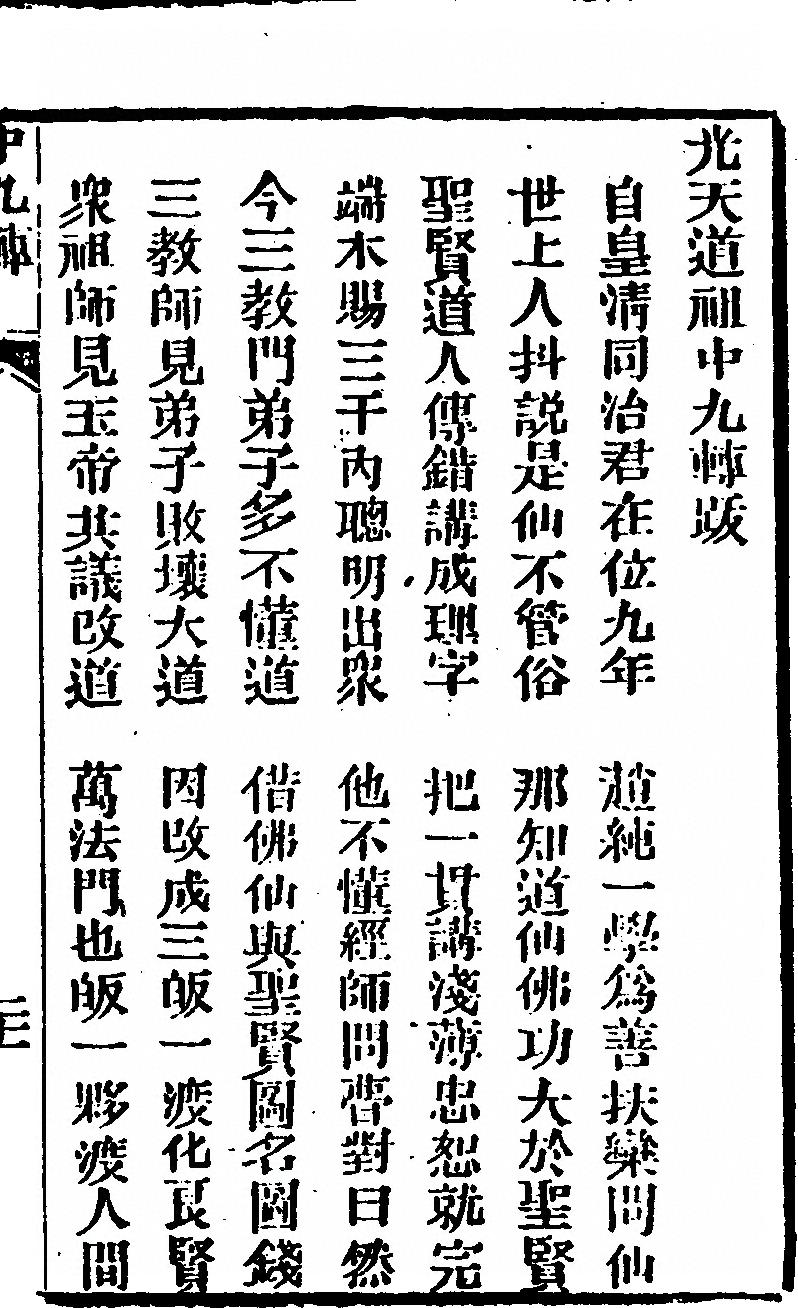 光天道祖中九轉跋
自皇清同治君在位九年　趙純一學爲善扶欒問仙
世上人抖說是仙不管俗　那知道仙佛功大於聖賢
聖賢道人傳錯講成理字　把一貫講淺薄忠恕就完
端木賜三千內聰明出衆　他不懂經師問曾對曰然
今三教門弟子多不懂道　借佛仙與聖賢圖名圖錢
三教師見弟子敗壞大道　因改成三皈一渡化良賢
衆祖師見玉帝共議改道　萬法門也皈一夥渡人間
中九轉
二